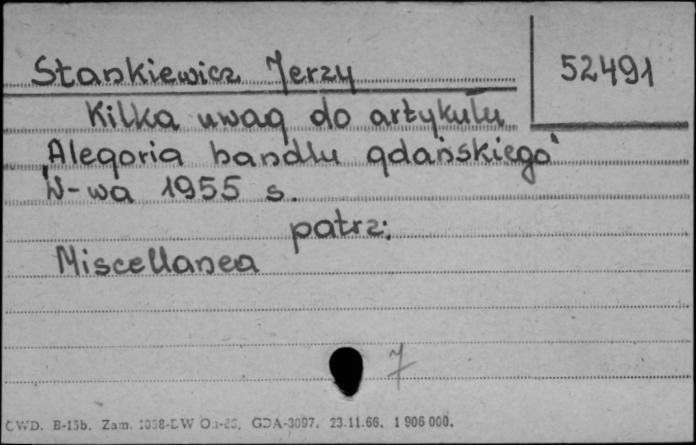 Stankiewicz Jerzy 52491
Kilka uwag do artykułu
Alegoria handlu gdańskiego
W-wa 1955 s.
patrz:
Miscellanea
7
CWD. B-15b. Zam. GDA-3097. 23.11.66. 1 906 000.